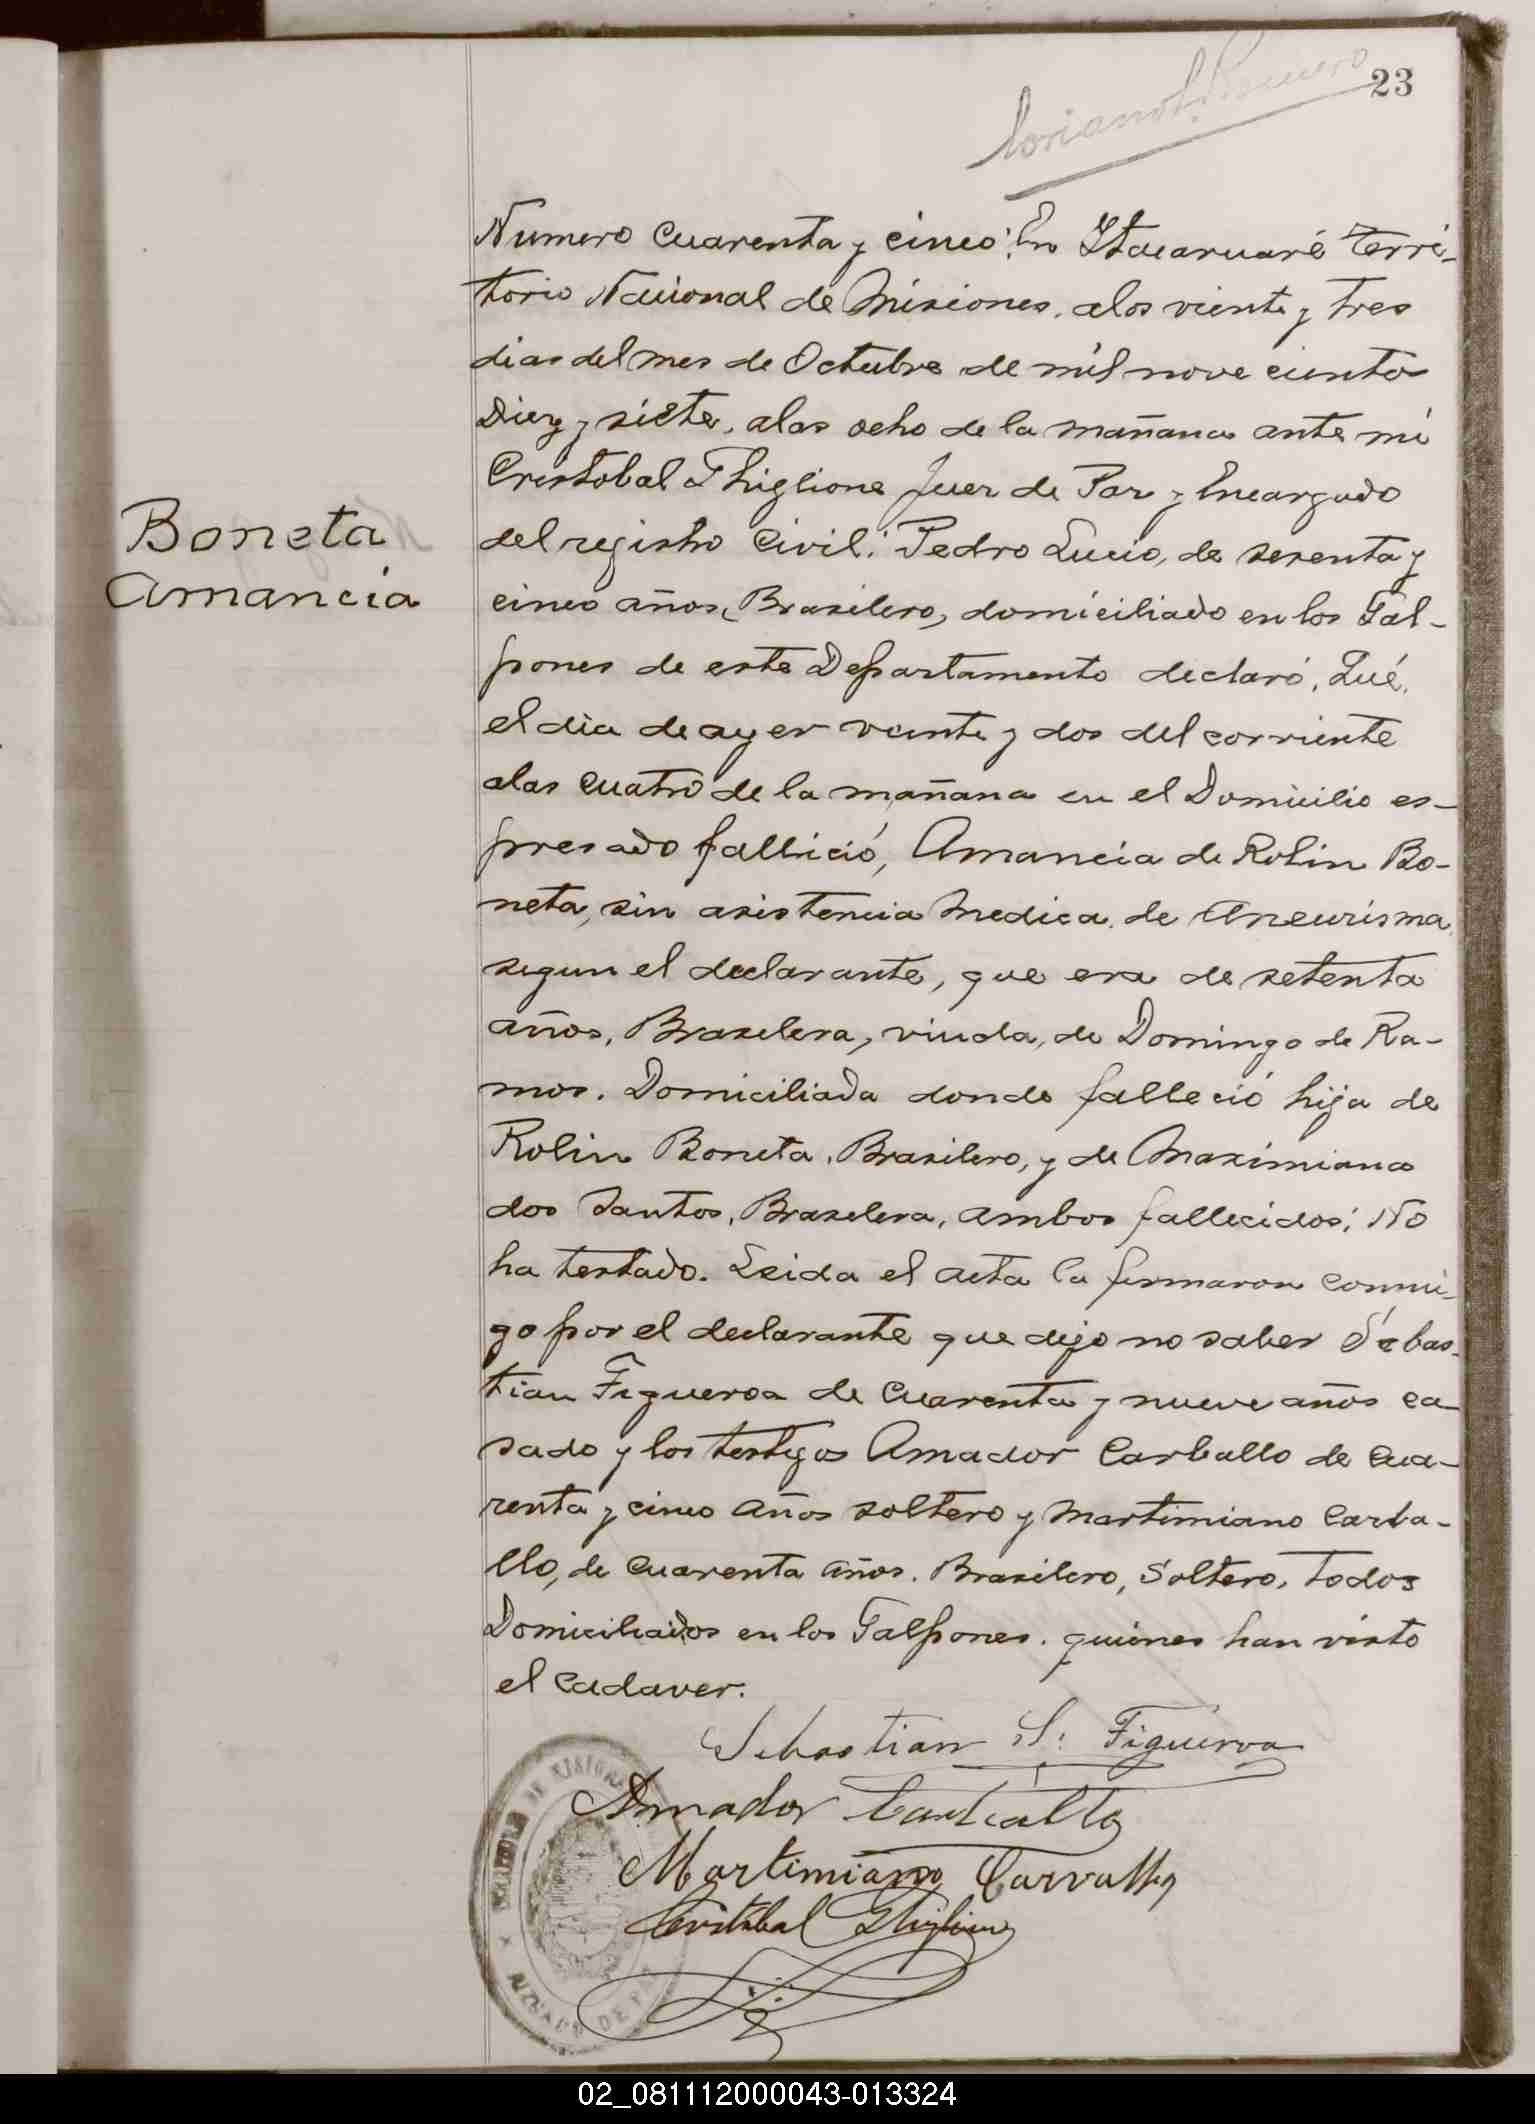 23
Boneta
Amancia
Numero cuarenta y cinco: En Itacaruaré Terri-
torio Nacional de Misiones. alos viente y tres
dias del mes de Octubre de mil nove ciento
Diez y siete, alas ocho de la mañana ante mi
Cristobal Ghiglione Juez de Paz y Encargado
del registro Civil: Pedro Lucio, de sesenta y
cinco años, Brasilero, domiciliado en los Gal-
pones de este Departamento declaró, Qué,
el dia de ayer veinte y dos del corriente
alas cuatro de la mañana en el Domicilio es-
presado fallició, Amancia de Rolin Bo-
neta, sin asistencia Medica, de Aneurisma,
segun el declarante, que era de setenta
años, Brasilera, viuda, de Domingo de Ra-
mos. Domiciliada donde falleció hija de
Rolin Boneta, Brasilero, y de Maximiana
dos Santos, Brasilera, ambos fallecidos; No
ha testado. Leida el acta la firmaron conmi-
go por el declarante que dijo no saber Sebas-
tian Figueroa de cuarenta y nueve años ca-
sado y los testigos Amador Carballo de cua-
renta y cinco años soltero y Martimiano Carba-
llo, de cuarenta años. Brasilero, Soltero, todos
Domiciliados en los Galpones. quiénes han visto
el cadaver.
Sebastian S. Figueroa
Amador Carballo
Martimiano Carvallo
Cristobal Ghiglione
DE MISIONES
JUZGADO DE PAZ
02_081112000043-013324